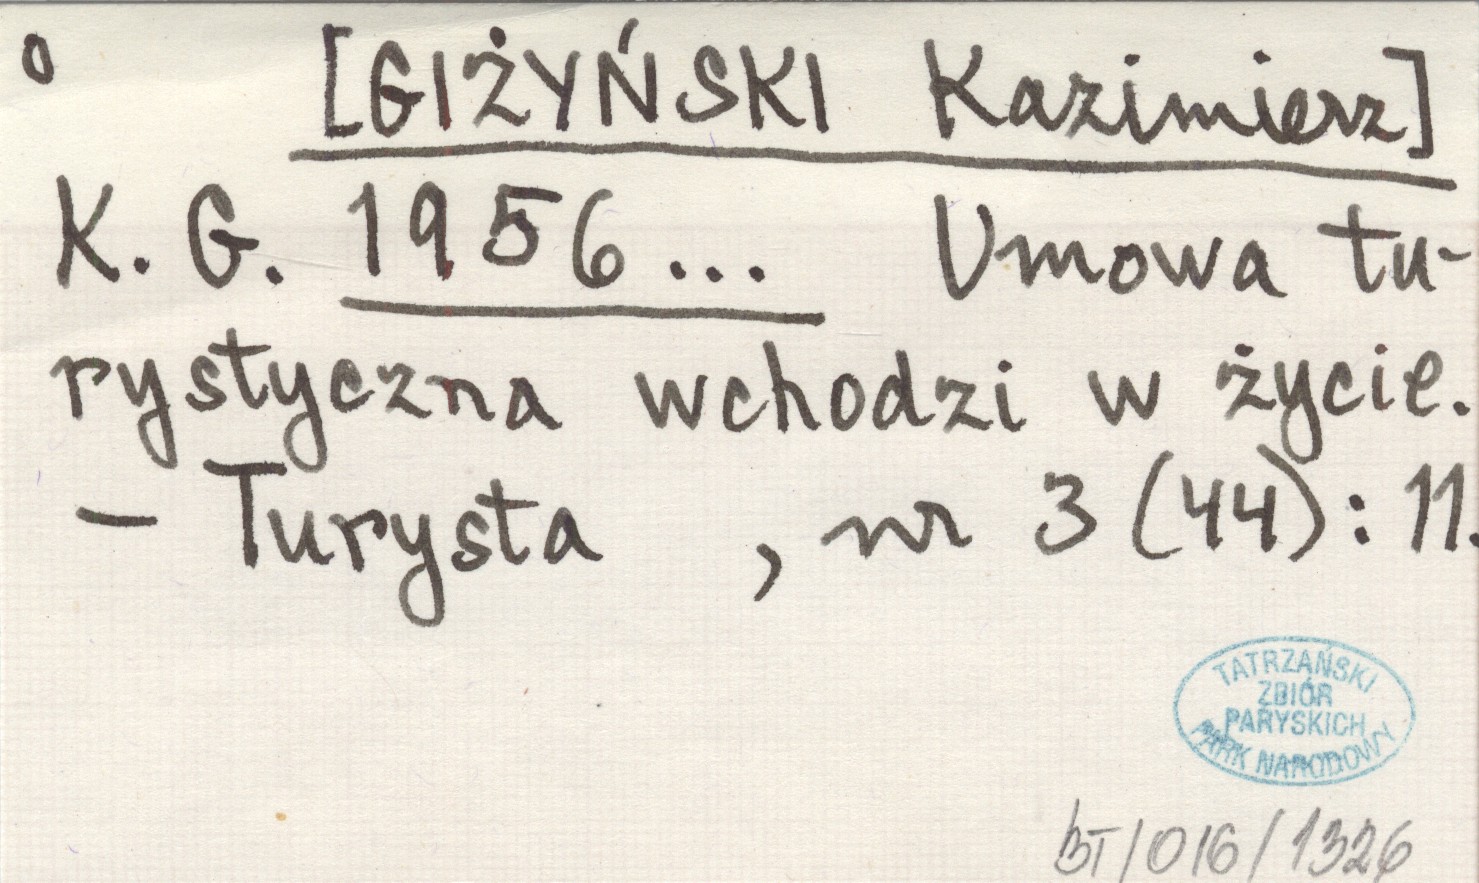 o [GIŻYŃSKI Kazimierz]
K. G. 1956... Umowa tu-
rystyczna wchodzi w życie.
– Turysta , nr 3 (44): 11.
TATRZAŃSKI
ZBIÓR
PARYSKICH
PARK NARODOWY
BT/016/1326